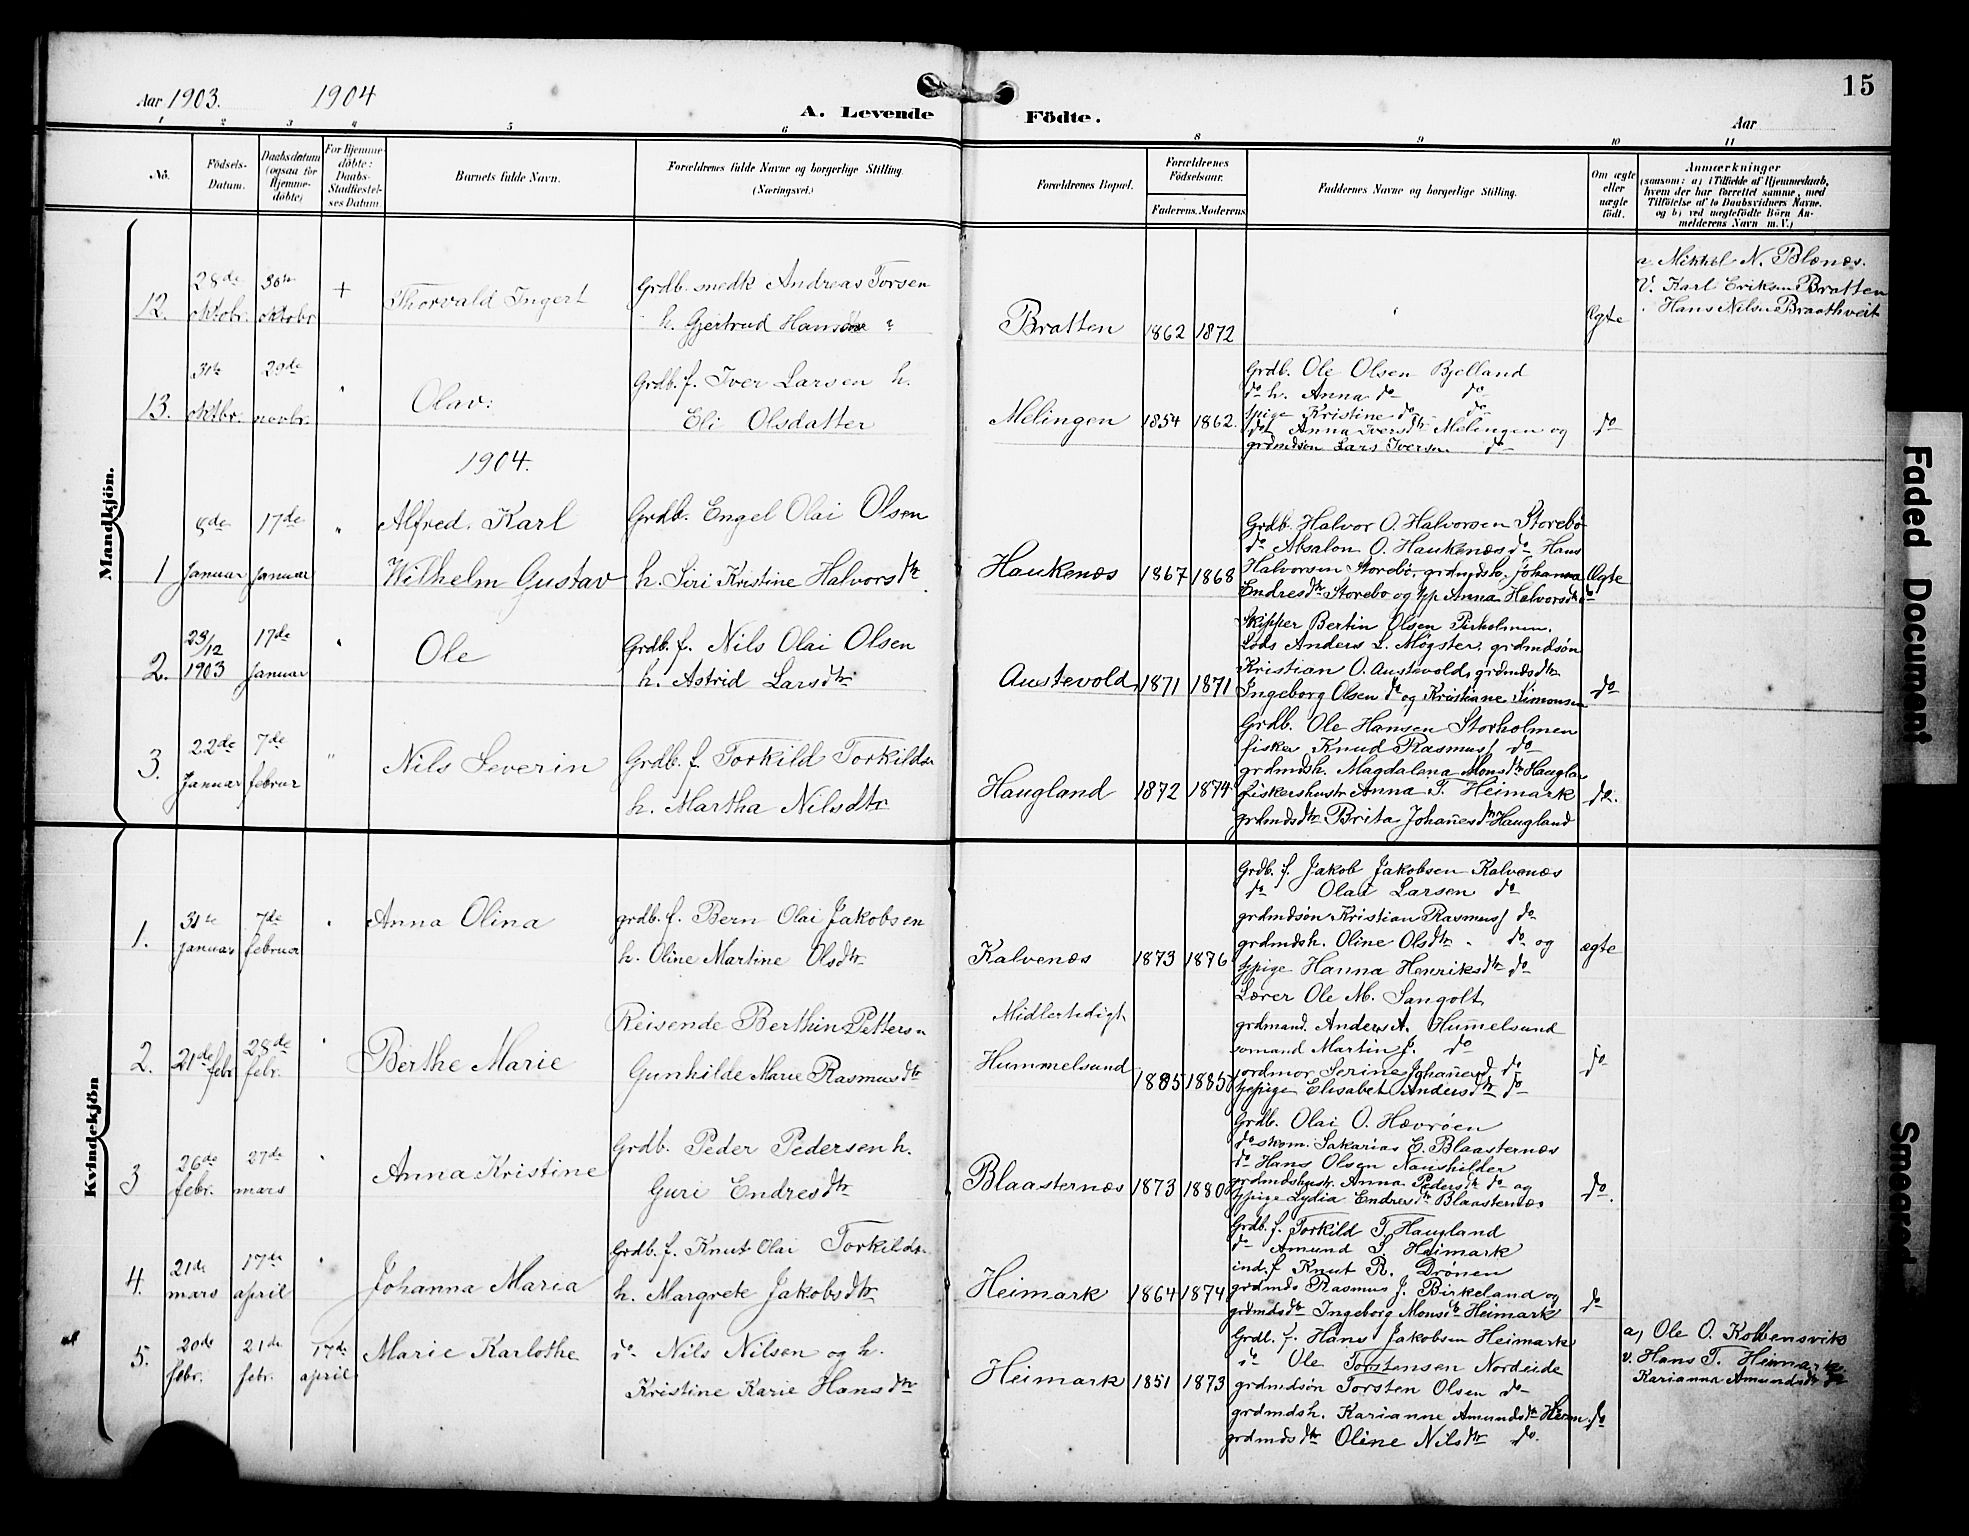 15
Aar 1903. 1904
A. Levende Födte.
Aar
1 2 3 4 5 6 8 9 10 11
No.
Födsels-Datum.
Daabsdatum (ogsaa for Hjemme-döbte)
For Hjemme-döbte: Daabs-Stadfæstel-ses Datum
Barnets fulde Navn.
Forældrenes fulde Navne og borgerlige Stilling.
(Næringsvei.)
Forældrenes Bopæl.
Forældrenes Födselsaar.
Faderens. Moderens
Faddernes Navne og borgerlige Stilling.
Om ægte eller uægte födt.
Anmærkninger
(saasom: a) i Tilfælde af Hjemmedaab,
hvem der har forrettet samme, med
Tilföielse af to Daabsvidners Navne.
og b) ved uegtefödte Börn An-
melderens Navn m.V.)
Mandkjön.
12. 28de oktobr. 30te oktobr + Thorvald Ingert
Grdb. snedk Andreas Torsen
h. Gjertrud Hansdtr "
Bratten 1862 1872
Ægte
a Mikkel N. Blænæs.
V. Karl Eriksen Bratten
Hans Nilsen Braathveit
13. 31te oktbr. 29de novbr. " Olav:
Grdb. f. Iver Larsen h.
Eli Olsdatter
Melingen 1854 1862.
Grdb. Ole Olsen Bjelland
do h. Anna do do
pige Kristine do do
do Anna Iversdtr Melingen og
grdmdsön Lars Iversen do
do
1904.
1 8de Januar 17de Januar " Alfred. Karl
Wilhelm Gustav
Grdb. Engel Olai Olsen
h. Siri Kristine Halvorsdtr.
Haukenæs 1867 1868
Grdb. Halvor O. Halvorsen Storebö
do Absalon O. Haukenæs do Hans
Halvorsen Storebö, grdmdsh. Johanna
Endresdtr Storebö og pp Anna Halvorsdtr do
Ægte
2. 23/12 1903 17de Januar " Ole
Grdb. f. Nils Olai Olsen
h. Astrid Larsdtr
Austevold 1871 1871
Skipper Bertin Olsen
Lods Anders L. Møgster, grdmdsön
Kristian O. Austevold, grdmdsdtr
Ingeborg Olsen do og Kristiane Simonsen
do
3. 22de Januar 7de februar " Nils Severin
Grdb. f. Torkild Torkilds.
h. Martha Nilsdtr
Haugland 1872 1874
Grdb. Ole Hansen Storholmen
fisker Knud Rasmus/ do
grdmdsh. Magdalena Monsdtr Haugla
fiskershustr Anna T. Heimark
grdmdsdtr Brita Johañesdtr Haugland
do.
Kvindekjön
1. 31te Januar 7de februar " Anna Olina
grdb. f. Bern Olai Jakobsen
h. Oline Martine Olsdtr
Kalvenæs 1873 1876
Grdb. f. Jakob Jakobsen Kalvenæs
do Olai Larsen do
grdmdsön Kristian Rasmus/ do
grdmdsh. Oline Olsdtr " do og
pige Hanna Henriksdtr do
ægte
2. 21de febr 28de febr. " Berthe Marie
Reisende Berthin Petters.
Gunhilde Marie Rasmusdtr
Midlertidigt
Hummelsund 1885 1885
Lærer Ole M. Sangolt
grdmand. Anders A. Hum̃elsund
sömand Martin J. do
jordmor Serine Johañesd do
pige Elisabet Andersdtr do
do
3 26de febr. 27de mars " Anna Kristine
Grdb. Peder Pedersen h.
Guri Endresdtr
Blaasternæs 1873 1880
Grdb. Olai O. Hævröen
do skom. Sakarias E. Blaasternæs
do Hans Olsen Naushilder
grdmdshustr. Anna Pedersdtr do og
pige Lydia Endresdtr Blaasternæs
do.
4. 21de mars 17de april " Johanna Maria
Grdb. f. Knut Olai Torkilds.
h. Margrete Jakobsdtr
Heimark 1864 1874
Grdb. f. Torkild T. Haugland
do Amund S. Heimark
ind. f Knut R. Drönen
grdmds Rasmus J. Birkeland og
grdmdsdtr Ingeborg Monsdtr Heimark
do
5. 20de febr. 21de febr. 17de april Marie Karlothe
do Nils Nilsen og h.
Kristine Karie Hansdtr
Heimark 1851 1873
Grdb. f. Hans Jakobsen Heimark
do Ole Torstensen Nordeide
grdmdsön Torsten Olsen do
grdmdsh. Karianne Amundsdtr Heim.
grdmdsdtr Oline Nilsdtr do.
do
a, Ole O. Kolbensvik
v. Hans T. Heimark
Karianna Amundsdtr do
Faded Document
Smeared